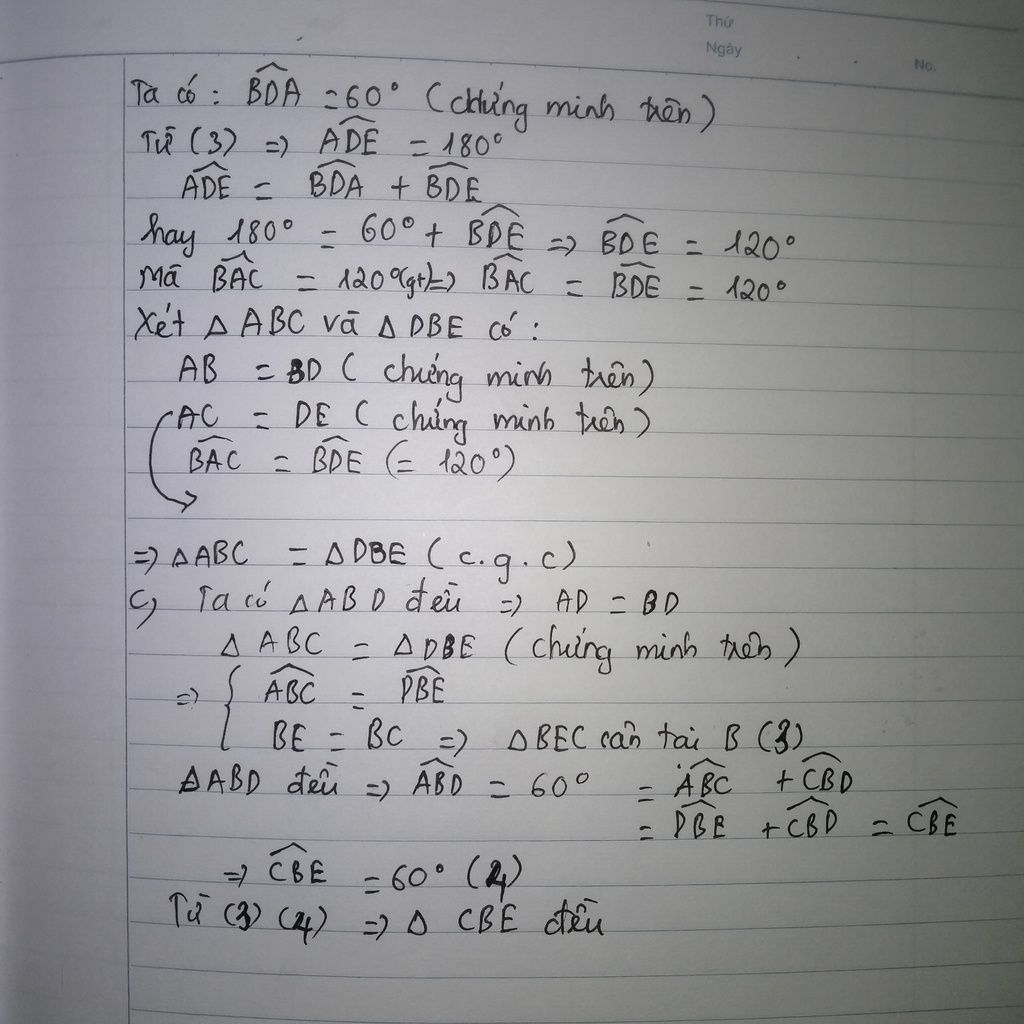 Thứ
Ngày
No.
Ta có : BDA = 60° (chứng minh trên)
Từ (3) => ADE = 180°
ADE = BDA + BDE
hay 180° = 60° + BDE => BDE = 120°
Mà BAC = 120°(gt) => BAC = BDE = 120°
Xét △ ABC và △ DBE có :
AB = BD ( chứng minh trên)
AC = DE ( chứng minh trên)
BAC = BDE (= 120°)
=> △ABC = △DBE ( c.g.c)
c, Ta có △ABD đều => AD = BD
△ ABC = △DBE ( chứng minh trên)
=> { ABC = DBE
BE = BC => △BEC cân tại B (3)
△ABD đều => ABD = 60° = ABC + CBD
= DBE + CBD = CBE
=> CBE = 60° (4)
Từ (3) (4) => △ CBE đều